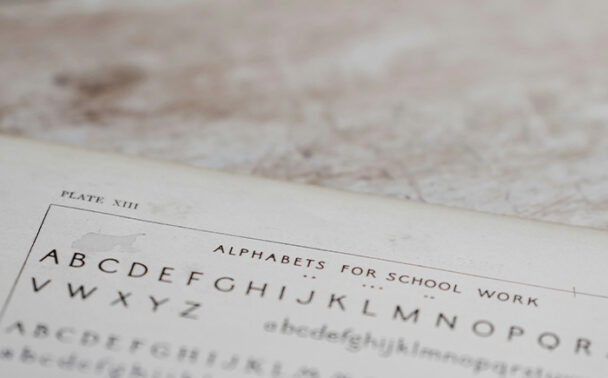 PLATE XIII
ALPHABETS FOR SCHOOL WORK
A B C D E F G H I J K L M N O P Q R
V W X Y Z
abcdefghijklmnopqrst
A B C D E F G H I J K L
abcdefgh